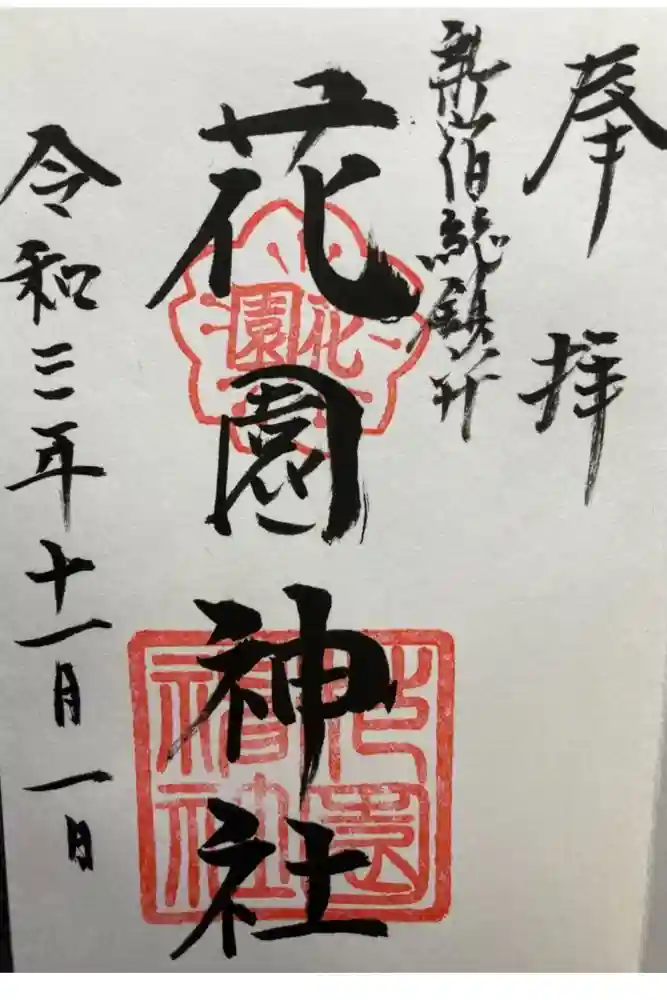 奉拝
新宿総鎮守
花園神社
令和三年十一月一日
花園
花園神社